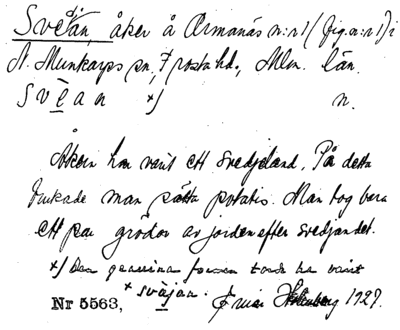 Svean, åker å Ormanäs n:r 1 (fig. a: r 1) i
St. Munkarps sn, Frosta hd., Mlm. län.
Svean x) n.
Åkern har varit ett svedjeland. På detta
brukade man sätta potatis. Man tog bara
ett par grödor av jorden efter svedjandet.
x) Den genuina formen torde ha varit
* sväjan.
Nr 5563, 1929.